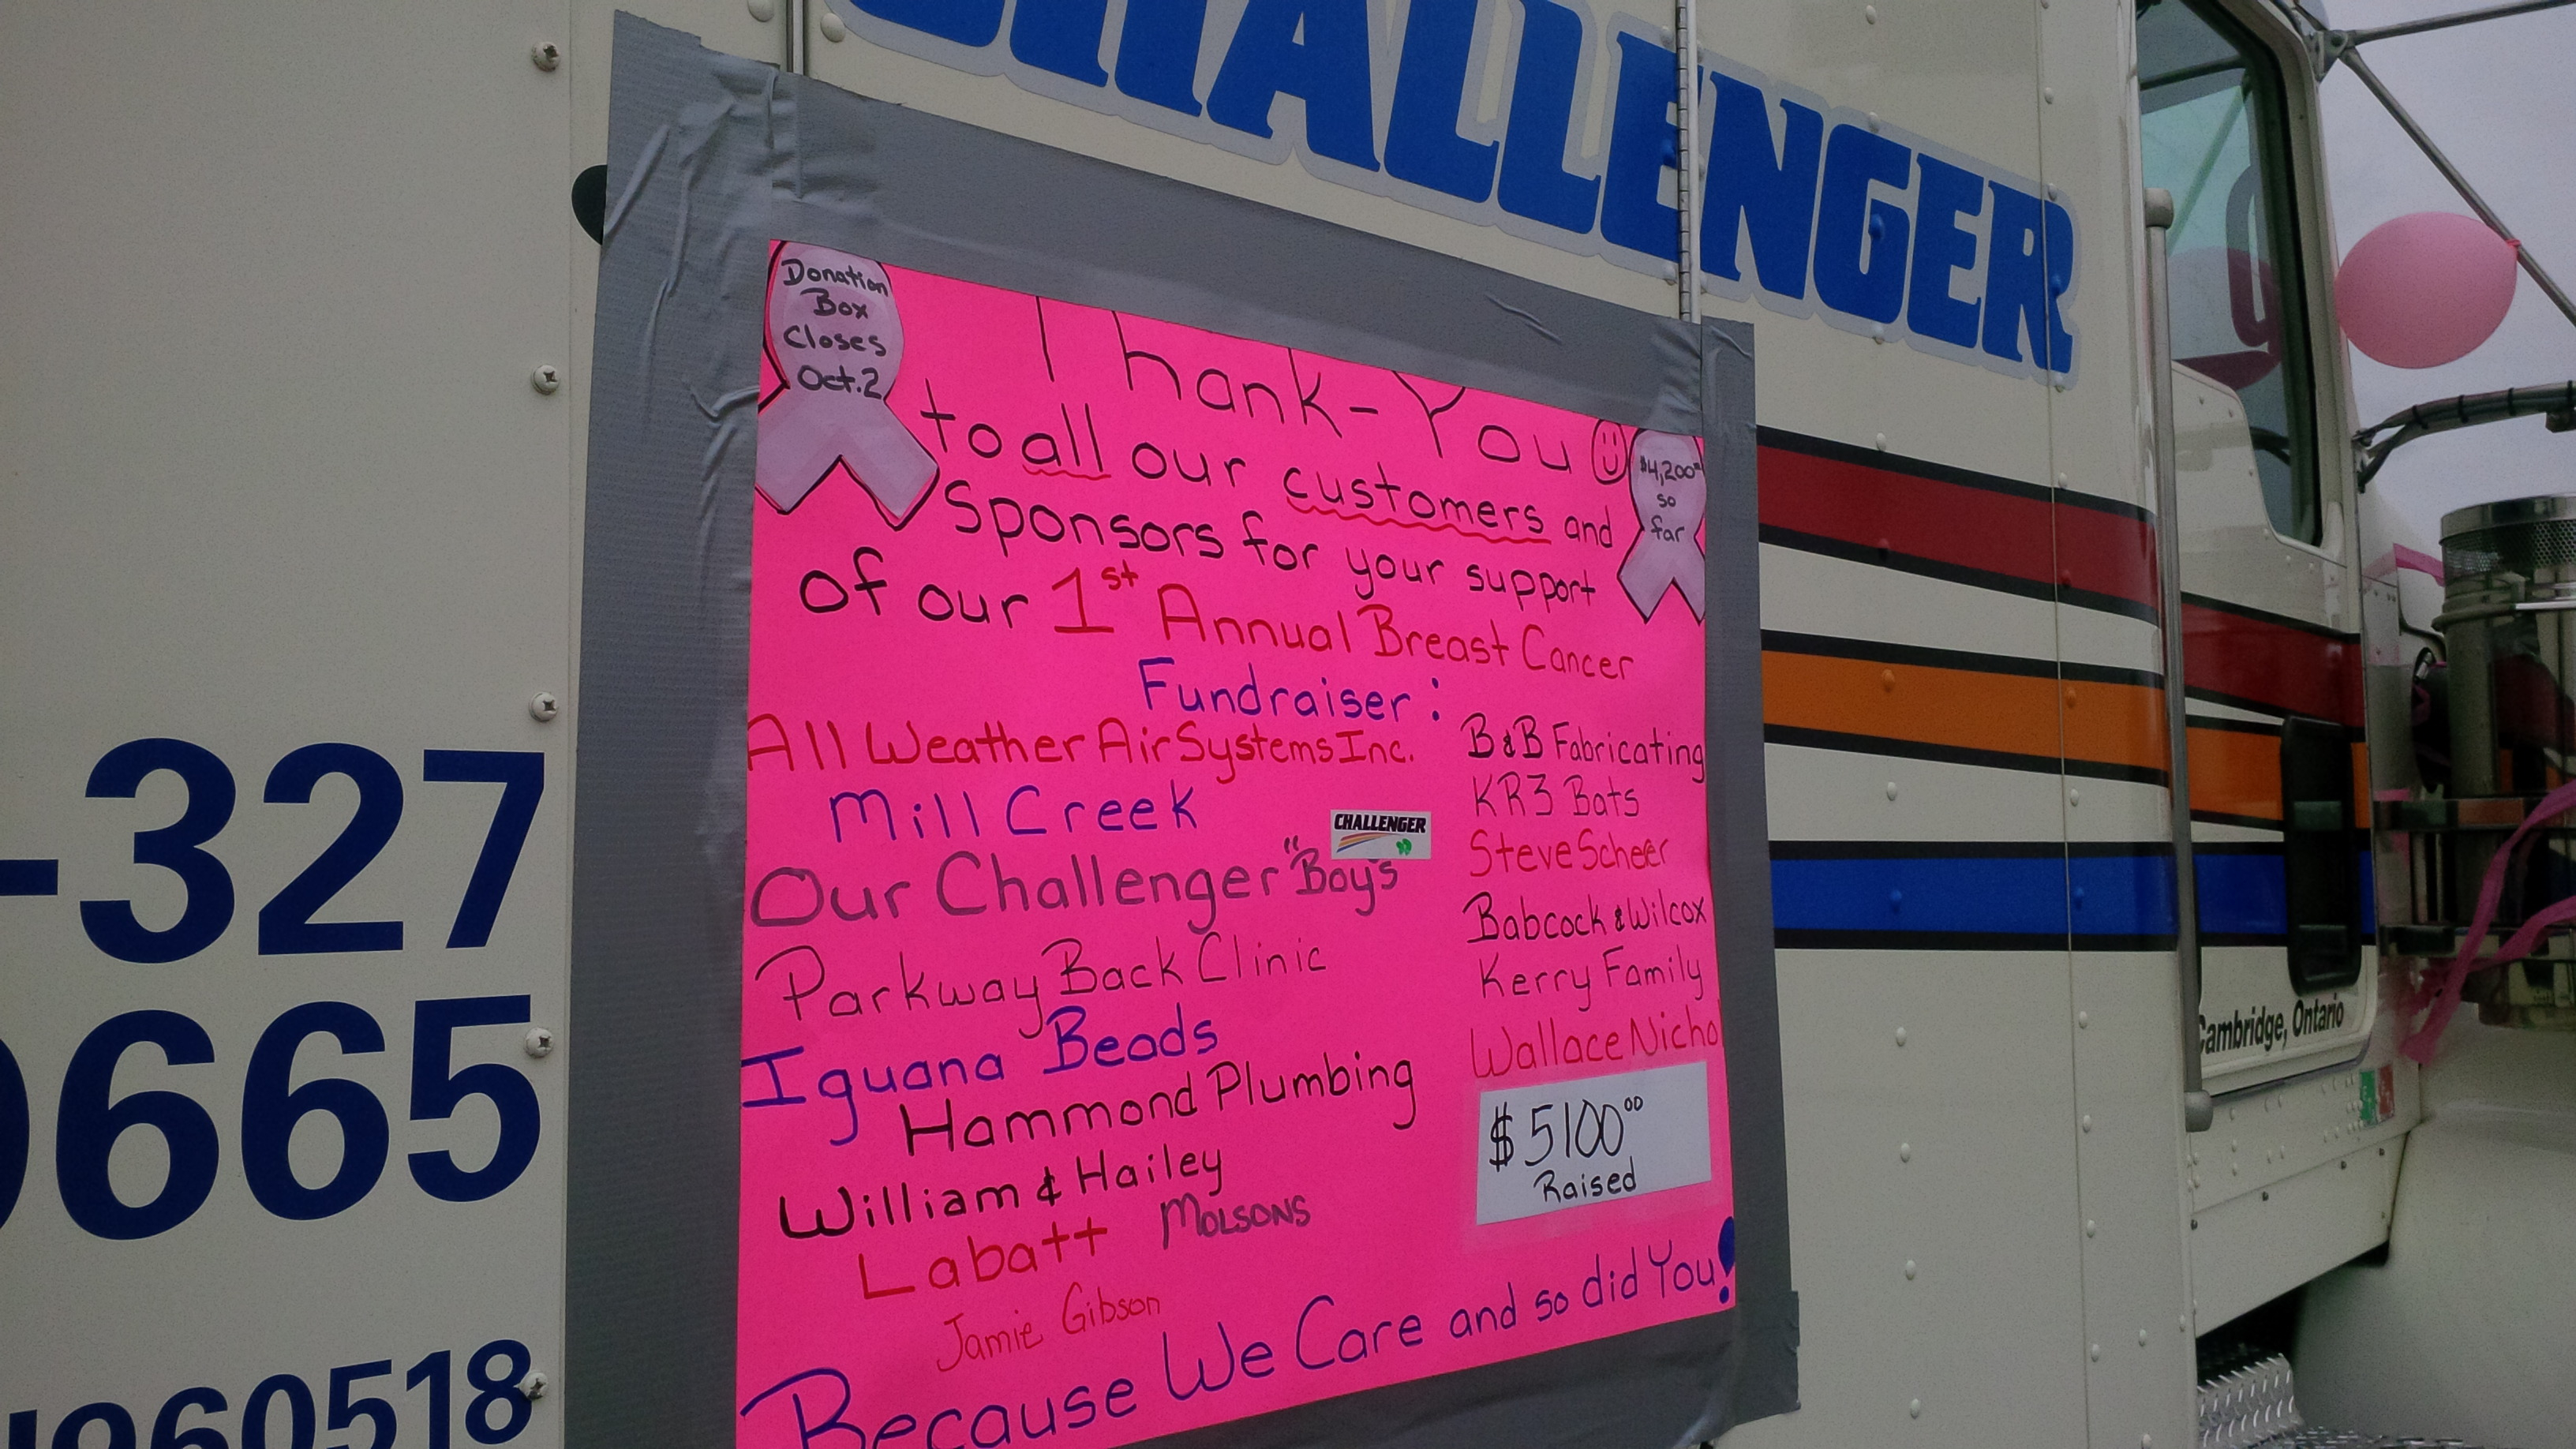 CHALLENGER
Donation
Box
Closes
Oct.2
Thank-You
to all our customers and
Sponsors for your support
of our 1st Annual Breast Cancer
Fundraiser:
$4,200
so
far
All Weather Air Systems Inc.
Mill Creek
CHALLENGER
Our Challenger "Boys
Parkway Back Clinic
Iguana Beads
Hammond Plumbing
William & Hailey
Labatt Molsons
Jamie Gibson
B&B Fabricating
KR3 Bats
Steve Scheer
Babcock & Wilcox
Kerry Family
Wallace Nicho
$5100.00
Raised
Because We Care and so did You!
-327
665
960518
Cambridge, Ontario